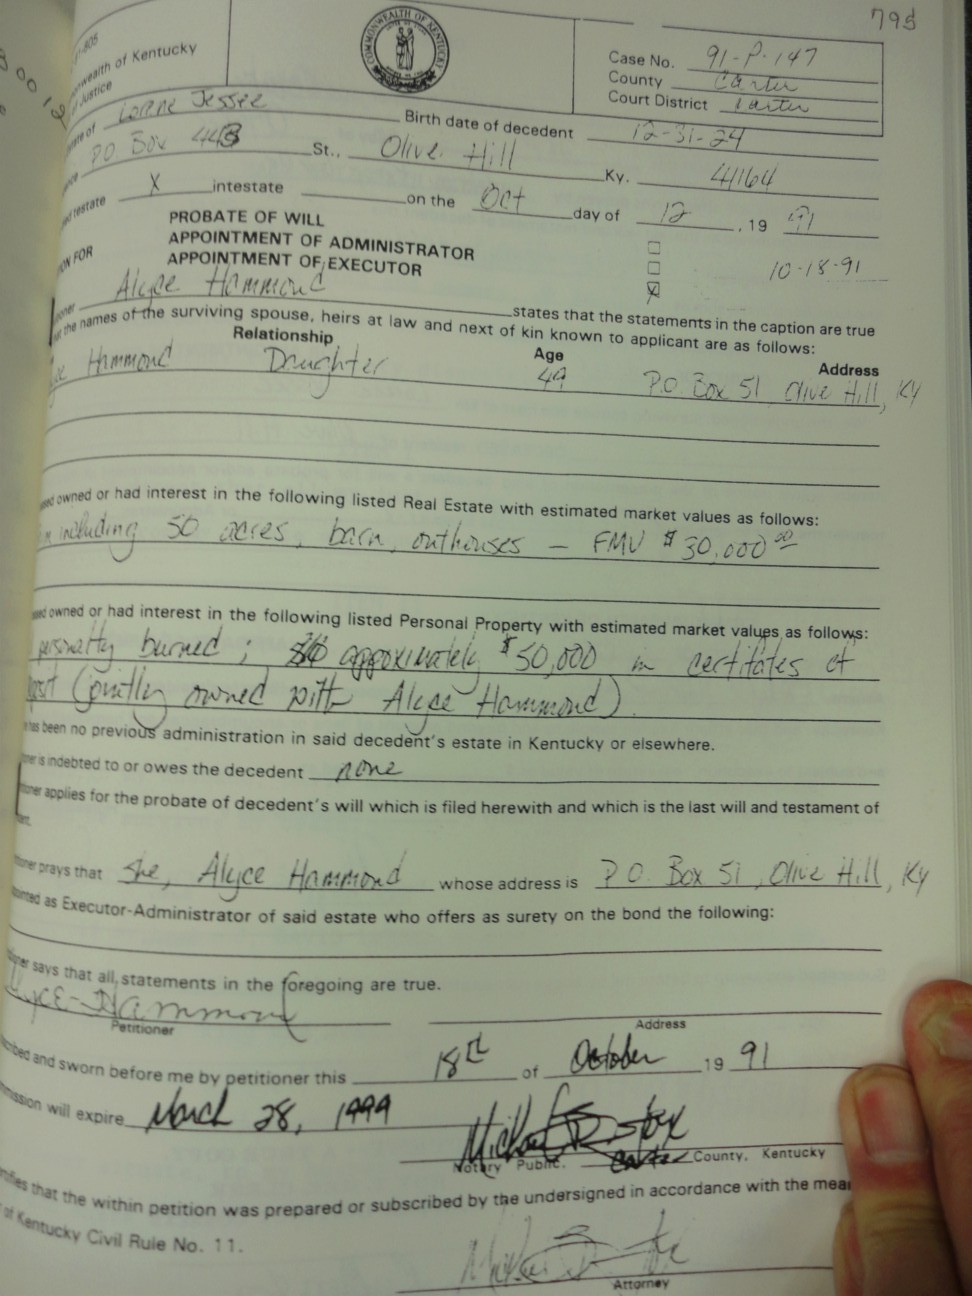 795
-805
wealth of Kentucky
Justice
COMMONWEALTH OF KENTUCKY
Case No. 91-P-147
County Carter
Court District Carter
of Lorne Jessee Birth date of decedent 12-31-24
PO Box 443 St., Olive Hill Ky. 41164
testate X intestate on the Oct day of 12, 19 91
PROBATE OF WILL
APPOINTMENT OF ADMINISTRATOR
APPOINTMENT OF EXECUTOR
ON FOR
10-18-91
Alyce Hammond states that the statements in the caption are true
the names of the surviving spouse, heirs at law and next of kin known to applicant are as follows:
Relationship Age Address
Hammond Daughter 49 P.O. Box 51, Olive Hill, Ky
owned or had interest in the following listed Real Estate with estimated market values as follows:
including 50 acres, barn, outhouses — FMV $30,000 00
owned or had interest in the following listed Personal Property with estimated market values as follows:
personalty burned; approximately $50,000 in certifates of
(jointly owned with Alyce Hammond).
has been no previous administration in said decedent's estate in Kentucky or elsewhere.
is indebted to or owes the decedent none
applies for the probate of decedent's will which is filed herewith and which is the last will and testament of
prays that she, Alyce Hammond whose address is P.O. Box 51, Olive Hill, Ky
as Executor-Administrator of said estate who offers as surety on the bond the following:
says that all statements in the foregoing are true.
Hammond
Petitioner Address
and sworn before me by petitioner this 18th of October 19 91
will expire March 28, 1999
Notary Public, Carter County, Kentucky
that the within petition was prepared or subscribed by the undersigned in accordance with the
of Kentucky Civil Rule No. 11.
Attorney